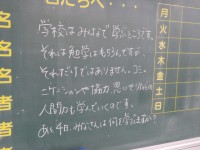 たちへ・・・
学校はみんなで学ぶところです。
それは勉学はもちろんですが、
それだけではありません。コミュ
ニケーションや協力、思いやりなどの
人間力も学んでいくのです。
あと4日、みなさんは何を学びますか？
名
名
者
者
月
火
水
木
金
土
日